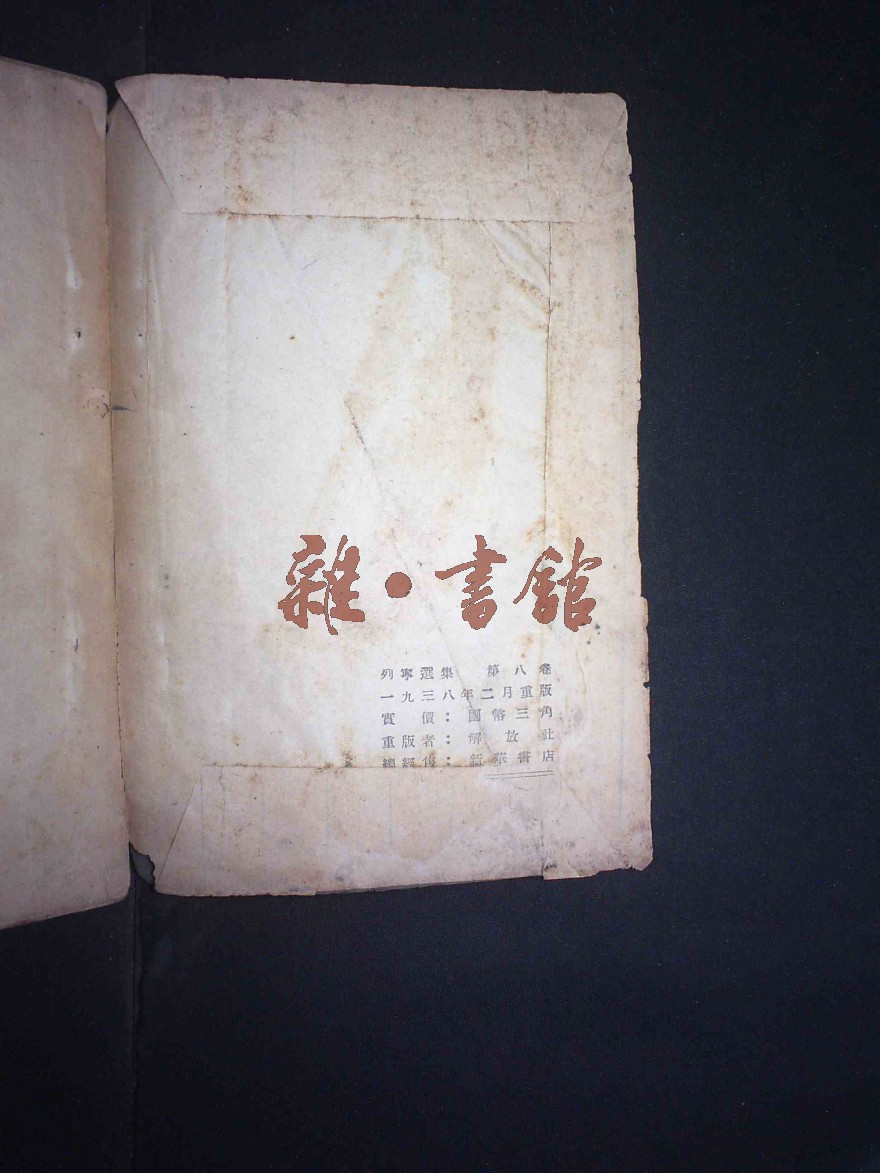 雜·書館
列寧選集 第八卷
一九三八年二月重版
實價：國幣三角
重版者：解放社
總經售：新華書店